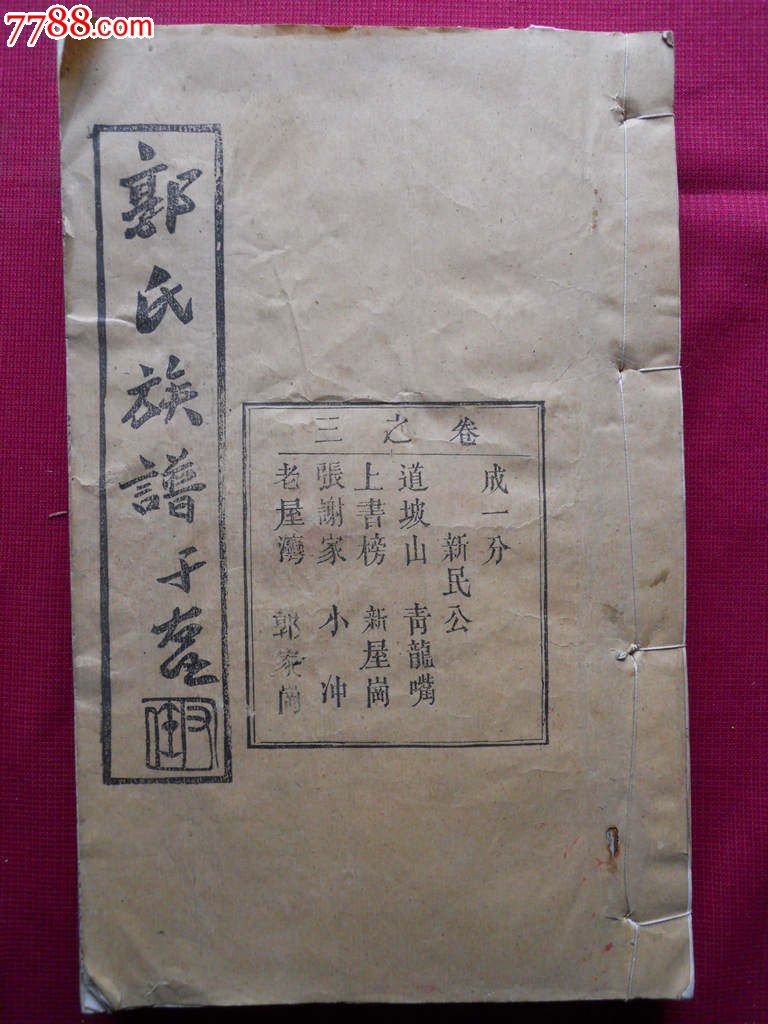 7788.com
郭氏族譜
于
卷之三
成一分
新民公
道坡山 青龍嘴
上書榜 新屋崗
張謝家 小沖
老屋灣 郭家崗